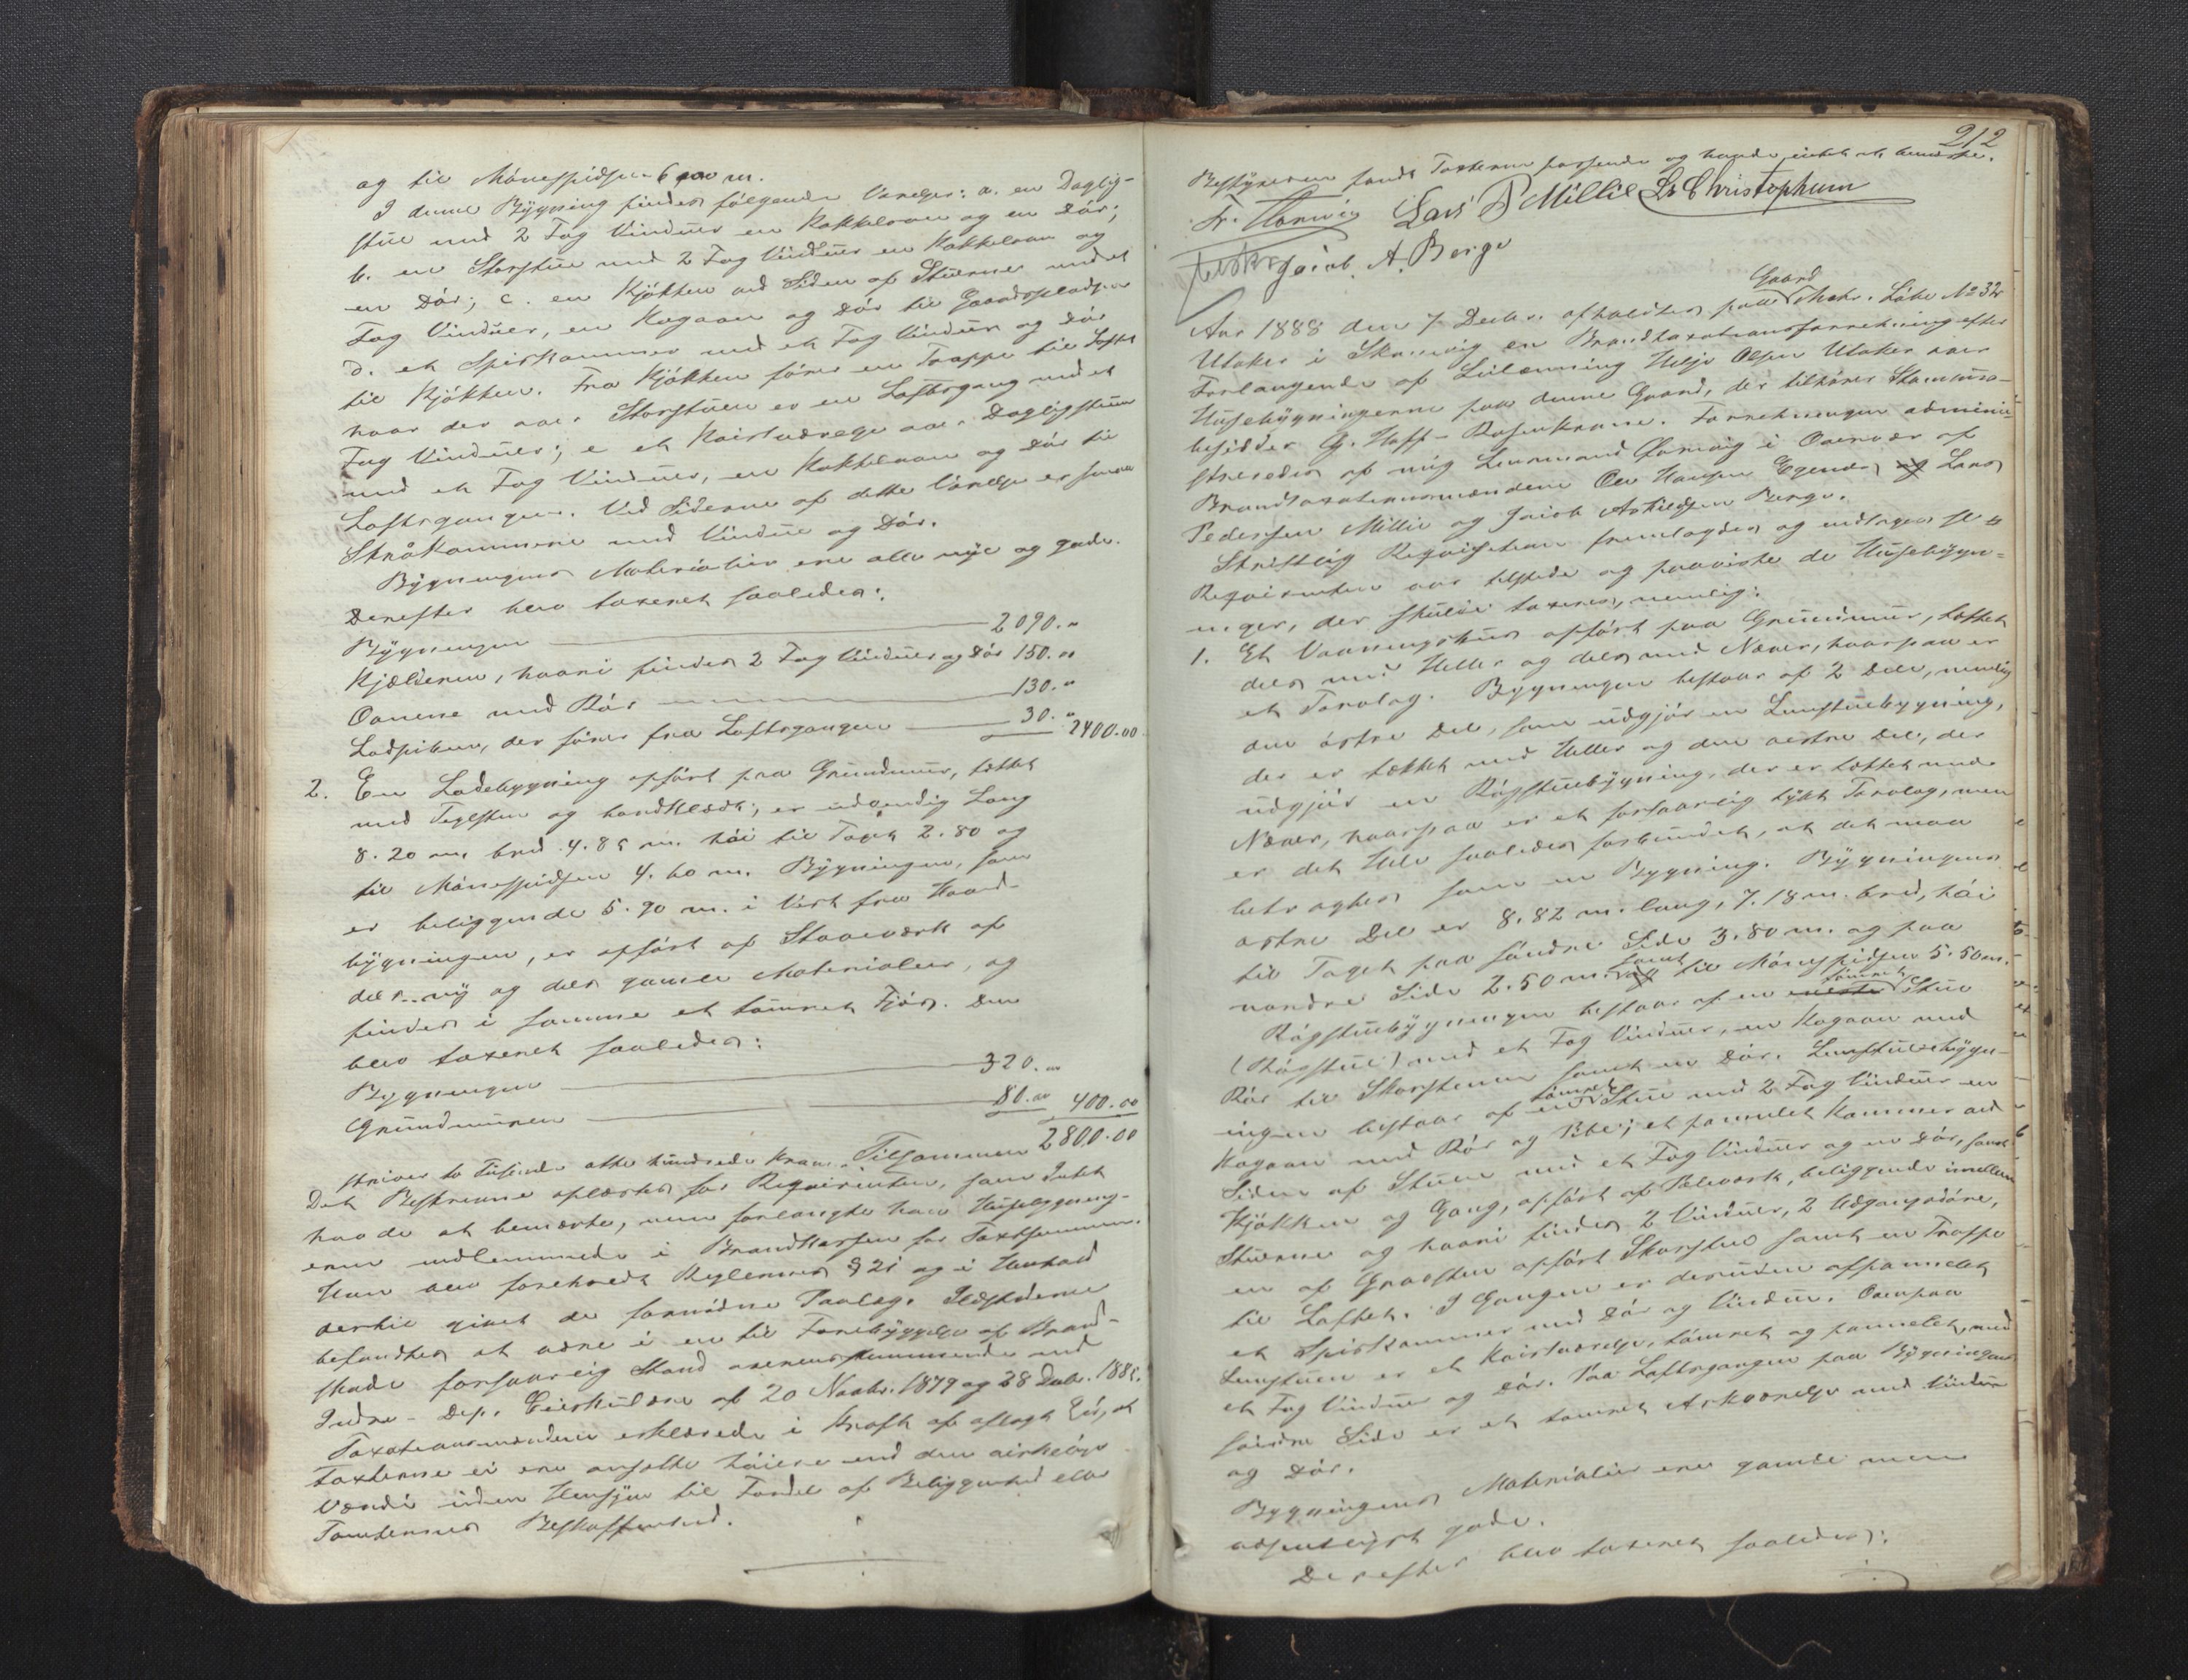 og til Mønespidsen 6,00 m.
I denne Bygning findes følgende Værelser: a. en Daglig-
stue med 2 Fag Vinduer en Kakkelovn og en Dør;
b. en Storstue med 2 Fag Vinduer en Kakkelovn og
en Dør; c. en Kjøkken ved Siden af Stuerne med et
Fag Vinduer, en Kogeovn og Dør til Gaardspladsen
d. et Spiskammer med et Fag Vinduer og Dør
til Kjøkken. Fra Kjøkken fører en Trappe til Loftet
hvor der over Storstuen er en Loftsgang med et
Fag Vinduer; e et Kvistværelse over Dagligstuen
med et Fag Vinduer, en Kakkelovn og Dør til
Loftsgangen. Ved Siderne af dette Værelse er smaa
Skråkammere med Vindue og Dør.
Bygningens Materialier ere alle nye og gode.
Derefter blev taxeret saaledes:
Bygningen 2090.„
Kjælderen, hvori findes 2 Fag Vinduer og Dør 150.„
Ovnene med Rør 130.„
Ladpiben, der fører fra Loftsgangen 30.„ 2400.00
2. En Ladebygning opført paa Grundmur, tækket
med Teglsten og bordklædt; er udvendig Lang
8.20 m. bred 4.85 m. høi til Taget 2.80 og
til Mønespidsen 4.60 m. Bygningen, som
er beliggende 5.90 m. i Vest fra Hoved-
bygningen, er opført af Stavværk af
dels ny og dels gamle Materialier, og
findes i samme et tømret Fjøs. Den
blev taxeret saaledes:
Bygningen 320.„
Grundmuren 80.00 400.00
skriver to Tusinde otte hundrede Kroner. Tilsammen 2800.00
Det Beskrevne oplæstes for Requirenten, som Intet
havde at bemærke, men forlangte han Husebygning-
erne indlemmede i Brandkassen for Taxtsummen.
Han blev foreholdt Reglernes § 21 og i Henhold
dertil givet de fornødne Paalæg. Ildstederne
befandtes at være i en til Forebyggelse af Brand-
skade forsvarlig Stand overensstemmende med
Indre-Dep. Cirkulære af 20 Novbr. 1879 og 28 Debr. 1885.
Taxationsmændene erklærede i Kraft af aflagt Eed, at
Taxterne ei ere ansatte høiere end den virkelige
Værdi uden Hensyn til Fordel af Beliggenhed eller
Tomternes Beskaffenhed.
212
Bestyreren fandt Taxterne passende og havde intet at bemærke.
Fr. Lars P Millie Ls Christophersen
Jacob. A. Berge
Aar 1888 den 7 Decbr. afholdtes paa Gaard Matr. Løbe No 32
Utaker i Skaanevig en Brandtaxationsforretning efter
Forlangende af Leilænning Helje Olsen Utaker over
Husebygningerne paa denne Gaard, der tilhører Stamhus-
besidder G. Hoff-Rosenkrone. Forretningen admini-
streredes af mig Lensmand i Overvær af
Brandtaxationsmændene Ole Hansen Egenes og Lars
Pedersen Millie og Jacob Askildsen Berge.
Skriftlig Requisition fremlagdes og indtages
Requirenten var tilstede og paaviste de Husebygn-
inger, der skulde taxeres, nemlig:
1. Et Vaaningshus opført paa Grundmur, tækket
dels med Heller og dels med Næver, hvorpaa er
et Torvlag. Bygningen bestaar af 2 Dele, nemlig
den østre Del, som udgjør en Lemstuebygning,
der er tækket med Heller og den vestre Del, der
udgjør en Røgstuebygning, der er tækket med
Næver, hvorpaa er et forsvarlig tykt Torvlag, men
er det Hele saaledes forbundet, at det maa
betragtes som en Bygning. Bygningens
østre Del er 8.82 m. lang, 7.18 m. bred, høi
til Taget paa søndre Side 3.80 m. og paa
nordre Side 2.50 m. samt til Mønespidsen 5.50 m.
Røgstuebygningen bestaar af en tømret Stue
(Røgstue) med et Fag Vinduer, en Kogeovn med
Rør til Skorstenen samt en Dør. Lemstuebygn-
ingen bestaar af en tømret Stue med 2 Fag Vinduer en
Kogeovn med Rør og Pibe; et pannelet Kammer ved
Siden af Stuen med et Fag Vinduer og en Dør, samt
Kjøkken og Gang, opført af Pæleværk, beliggende imellem
Stuerne og hvori findes 2 Vinduer, 2 Udgangsdøre,
en af Graasten opført Skorsten samt en Trappe
til Loftet. I Gangen er desuden afpannelet
et Spiskammer med Dør og Vindue. Ovenpaa
Lemstuen er et Kvistværelse, tømret og pannelet, med
et Fag Vinduer og Dør. Paa Loftsgangen paa Bygningens
søndre Side er et tømret Arkværelse med Vindue
og Dør.
Bygningens Materialier ere gamle men
væsentligst gode.
Derefter blev taxeret saaledes: